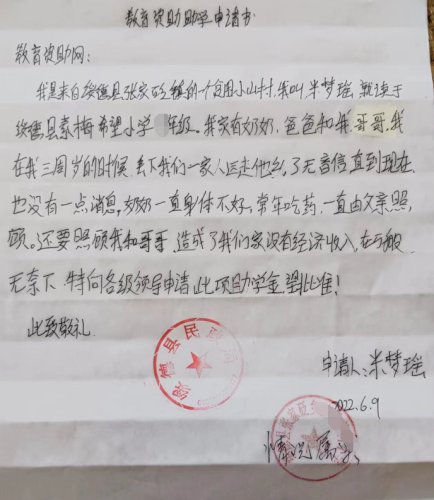 教育资助助学申请书
教育资助网:
我是来自绥德县张家砭镇的一个贫困小山村,我叫米梦瑶就读于
绥德县素梅希望小学 年级。我家有奶奶,爸爸和我,哥哥,我
在我三周岁的时候,丢下我们一家人远走他乡,了无音信直到现在
也没有一点消息,奶奶一直身体不好,常年吃药,一直由父亲照,
顾。还要照顾我和哥哥,造成了我们家没有经济收入,在万般
无奈下,特向各级领导申请此项助学金,望批准!
此致敬礼
绥德县民政局
申请人:米梦瑶
2022.6.9
情况属实